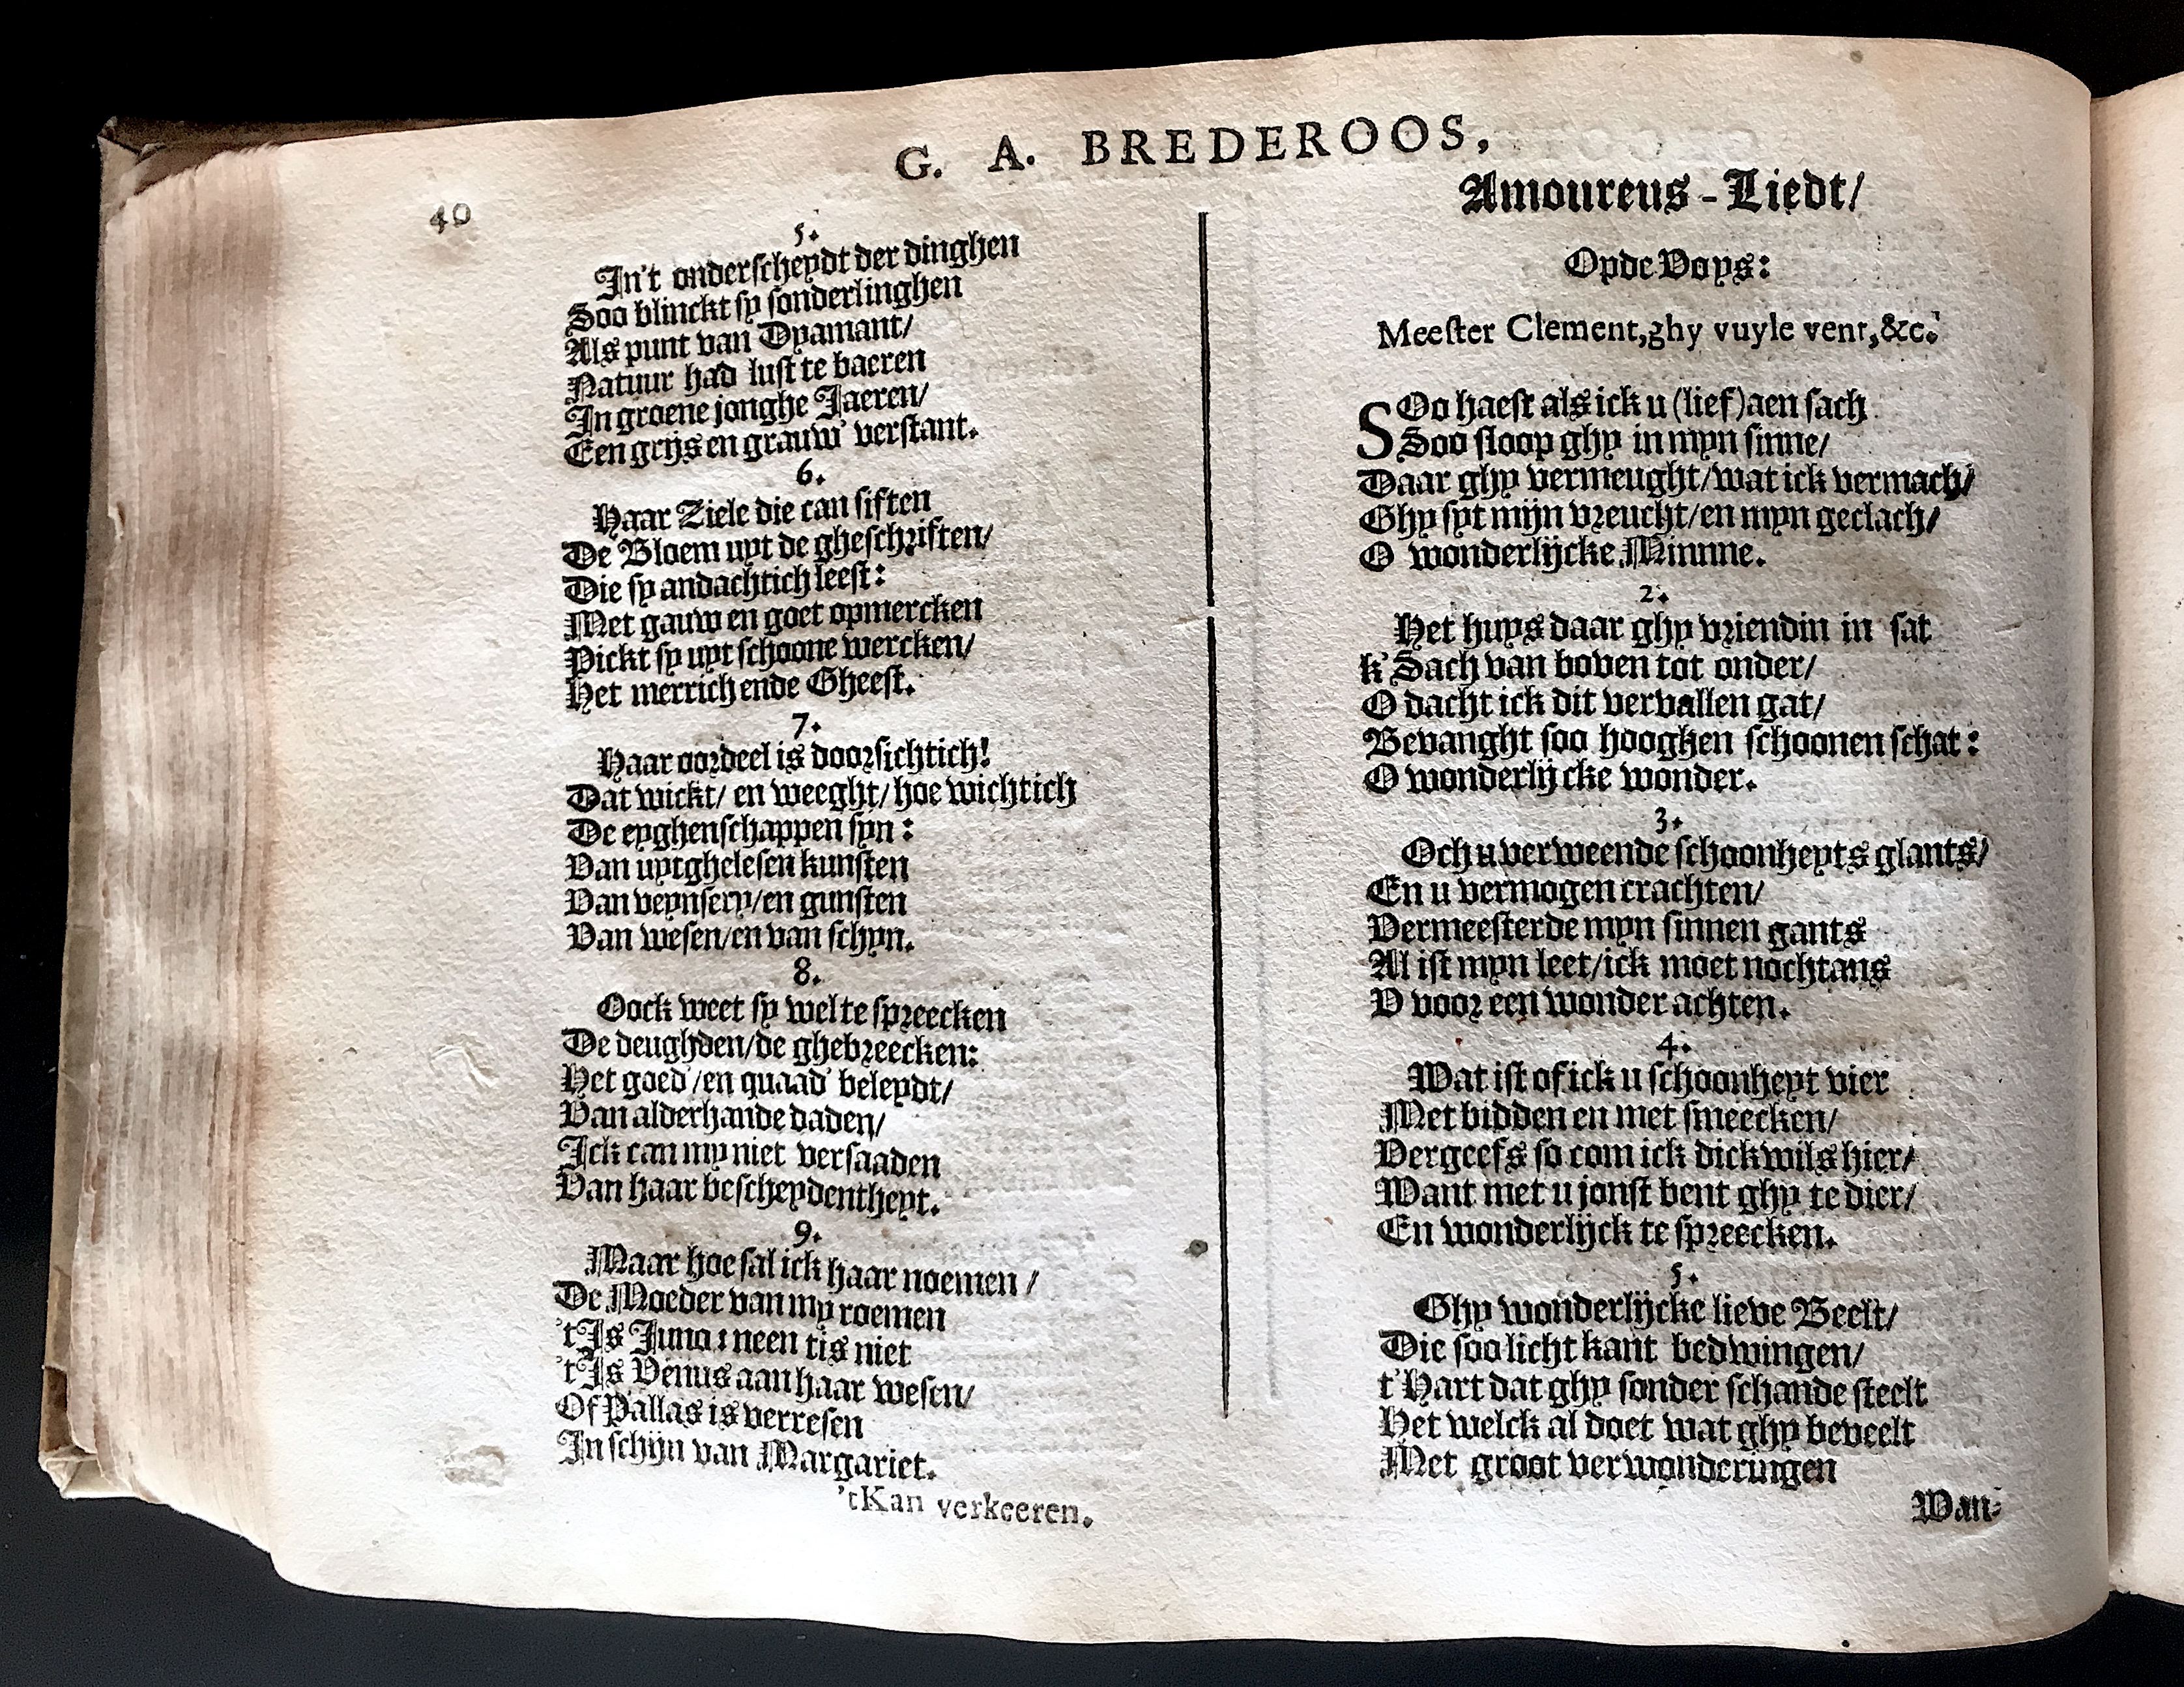 G. A. BREDEROOS,
40
5.
In't onderscheydt der dinghen
Soo blinckt sy sonderlinghen
Als punt van Dyamant/
Natuur had lust te baeren
In groene jonghe Jaeren/
Een grijs en grauw' verstant.
6.
Haar Ziele die can siften
De Bloem uyt de gheschriften/
Die sy andachtich leest:
Met gauw en goet opmercken
Pickt sy uyt schoone wercken/
Het merrich ende Gheest.
7.
Haar oordeel is doorsichtich!
Dat wickt/ en weeght/ hoe wichtich
De eyghenschappen syn:
Van uytghelesen kunsten
Van veynsery/en gunsten
Van wesen/en van schyn.
8.
Oock weet sy wel te spreecken
De deughden/de ghebreecken:
Het goed'/en quaad' beleydt/
Van alderhande daden/
Ick can my niet versaaden
Van haar bescheydentheyt.
9.
Maar hoe sal ick haar noemen/
De Moeder van my roemen
't Is Juno: neen tis niet
't Is Venus aan haar wesen/
Of Pallas is verresen
In schijn van Margariet.
't Kan verkeeren.
Amoureus-Liedt/
Opde Voys:
Meester Clement, ghy vuyle vent, &c.
SOo haest als ick u (lief) aen sach
Soo sloop ghy in myn sinne/
Daar ghy vermeught/wat ick vermach/
Ghy syt mijn vreucht/en myn geclach/
O wonderlijcke Minnne.
2.
Het huys daar ghy vriendin in sat
k'Sach van boven tot onder/
O dacht ick dit vervallen gat/
Bevanght soo hooghen schoonen schat:
O wonderlijcke wonder.
3.
Och u verweende schoonheyts glants/
En u vermogen crachten/
Vermeesterde myn sinnen gants
Al ist myn leet/ick moet nochtans
V voor een wonder achten.
4.
Wat ist of ick u schoonheyt vier
Met bidden en met smeecken/
Vergeefs so com ick dickwils hier/
Want met u jonst bent ghy te dier/
En wonderlijck te spreecken.
5.
Ghy wonderlijcke lieve Beelt/
Die soo licht kant bedwingen/
t'Hart dat ghy sonder schande steelt
Het welck al doet wat ghy beveelt
Met groot verwonderingen
Wan-